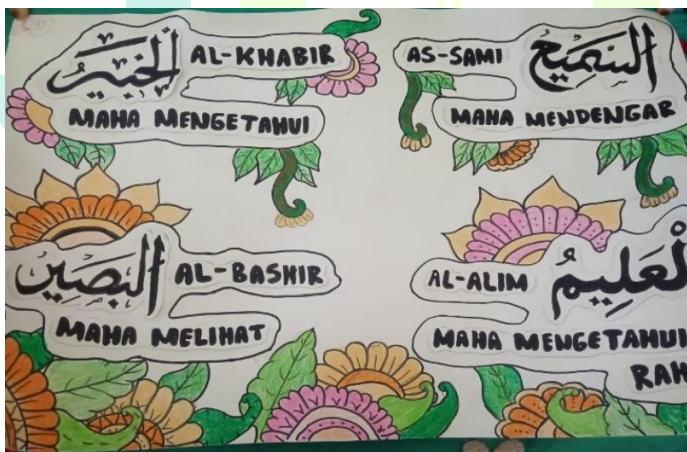 الخبير AL-KHABIR
MAHA MENGETAHUI
AS-SAMI السَّمِيعُ
MAHA MENDENGAR
البصير AL-BASHIR
MAHA MELIHAT
AL-ALIM لْعَلِيمُ
MAHA MENGETAHUI
RAH